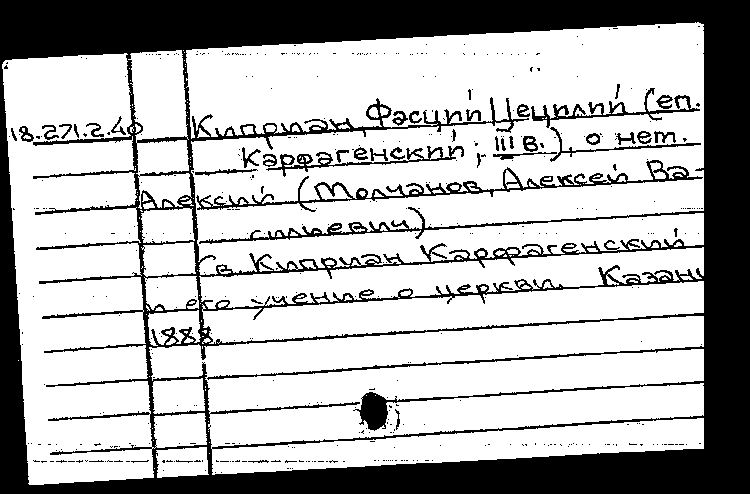 18.271.2.40 Киприан, Фасций Цецилий (еп.
Карфагенский; III в.), о нем.
Алексий (Молчанов, Алексей Ва-
сильевич)
Св. Киприан Карфагенский
и его учение о церкви. Казань
1888.